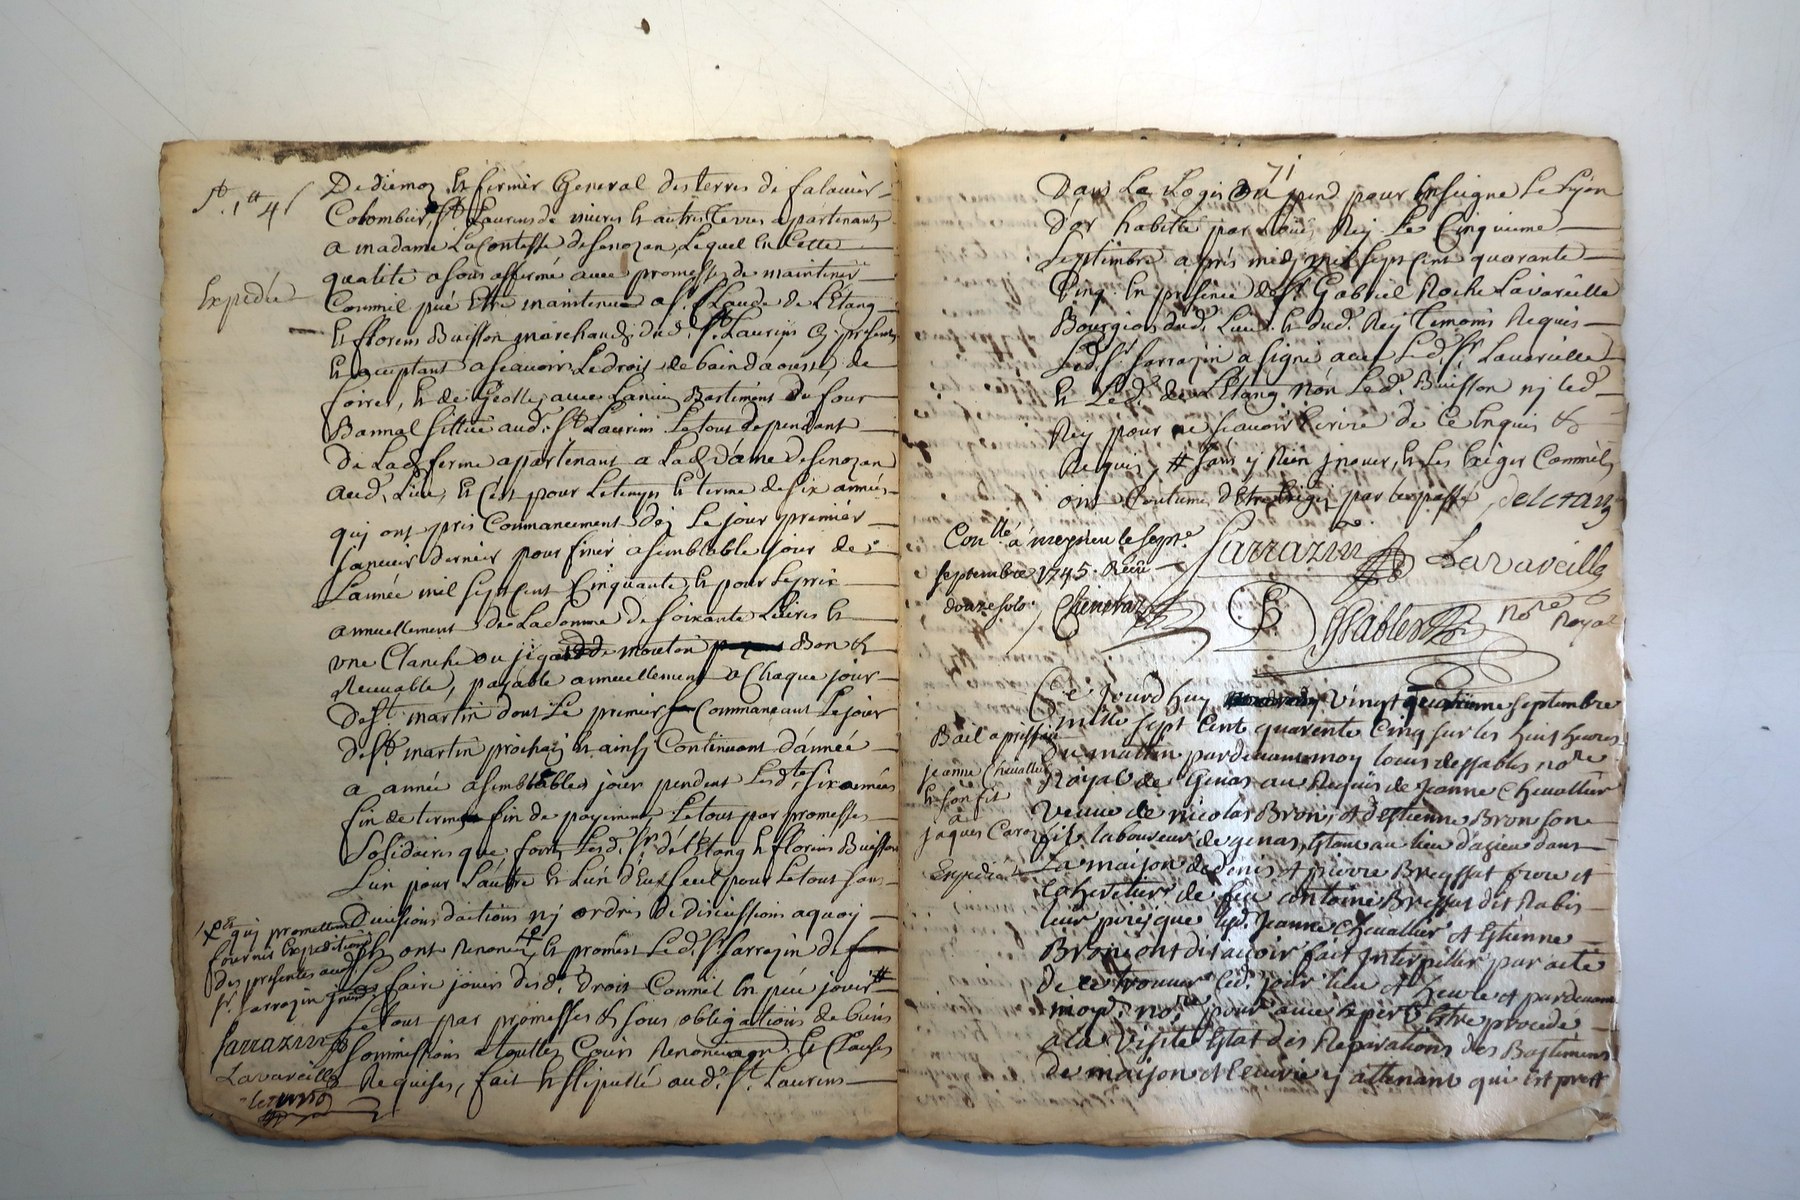 De diemoz et fermier General des terres de falavier
Colombier, St Laurens de mures et autres terres apartenants
a madame La Contesse de senozan, Lequel en Cette
qualité a sous affermé avec promesse de maintenir
Comme il peut Etre maintenu a sr. Claude de L'Etang
et florens Buisson marchands dud. St. Laurens Cy presents
et aceptant a scavoir Le droit de de
foires, et de avec Bastiment du four
Bannal sittué aud. St Laurens Le tout dependant
De Lad. ferme apartenant a Lad. dame de senozan
aud. Lieu, et C'est pour Le temps et terme de six années
qui ont pris Commancement dez Le jour premier
Janvier dernier pour finir a semblable jour de
L'année mil sept Cent Cinquante, et pour Le prix
annuellement de La somme de soixante Livres et
une Clanche ou jigot de mouton Bon et
Recevable, payable annuellement a Chaque jour
De St martin dont Le premier Commancant Le jour
de St. martin prochain et ainsy Continuant d'année
a année a semblables jour pendent Lesd. six années
fin de terme fin de payement, Le tout par promesses
Solidaires que font Lesd. Srs. de l'Etang et florens Buisson
L'un pour L'autre et L'un d'Eux seul pour Le tout sans
Divisions d'actions ny ordres de discussions a quoy
ils ont Renoncé et promest Led. Sr Sarrazin de
Le faire jouir desd. droits Comme il en peut jouir #
Le tout par promesses et sous obligations de biens
soummissions a touttes Cours Renonciaons et Clauses
Requises, fait et stipullé aud. St. Laurens
Expédié
qui promettent
fournir Expedition
des presentes aud.
sr. sarrazin
Sarrazin
Lavareille
71
Dans Le Logis ou pend pour Enseigne Le Lyon
d'or habitté par Rey Le Cinquieme
Septembre après midy mil sept Cent quarante
Cinq. En presence de Sr Gabriel Roche Lavareille
Bourgeois dud. Lieu et dud. Rey temoins Requis
Led. Sr Sarrazin a signé avec Led. Sr. Lavareille
et Led. de L'Etang Non Led. Buisson ny led.
Rey pour ne scavoir Ecrire de Ce Enquis et
Requis, # sans y Rien jnover, et Les Exiger Comme ils
ont Coutume d'Etre Exigés par Le passé Deletang
Conllé à meyzieu le sept.e
septembre 1745. Reçu
douze sols. Chenevaz
Sarrazin Lavareille
Dessables nore Royal
Ce jourd'huy vingt quatrieme septembre
mille sept Cent quarente Cinq sur les huit heures
du mattin pardevant moy louis dessables nore
Royal de Genas au Requis de Jeanne Chevallier
veuve de nicolas Bron, et d'Estienne Bron son
fils laboureur de genas, Etant au lieu d'azieu dans
La maison de denis et pierre Breyssat frere et
Coheritiers de feu antoine Breyssat dit Rabis
leur pere que led. Jeanne Chevallier et Estienne
Bron ont dit avoir fait jnterpeller par acte
de ce trouver led. jour lieu et heure et pardevant
moyd. nore pour avec Expert Etre procédé
a la visite Estat des Reparations des Bastimens
de maison et Ecurie y attenant qui est prest
Bail a prisfait
jeanne Chevallier
et son fils
a
jaques Caraz
Expédié